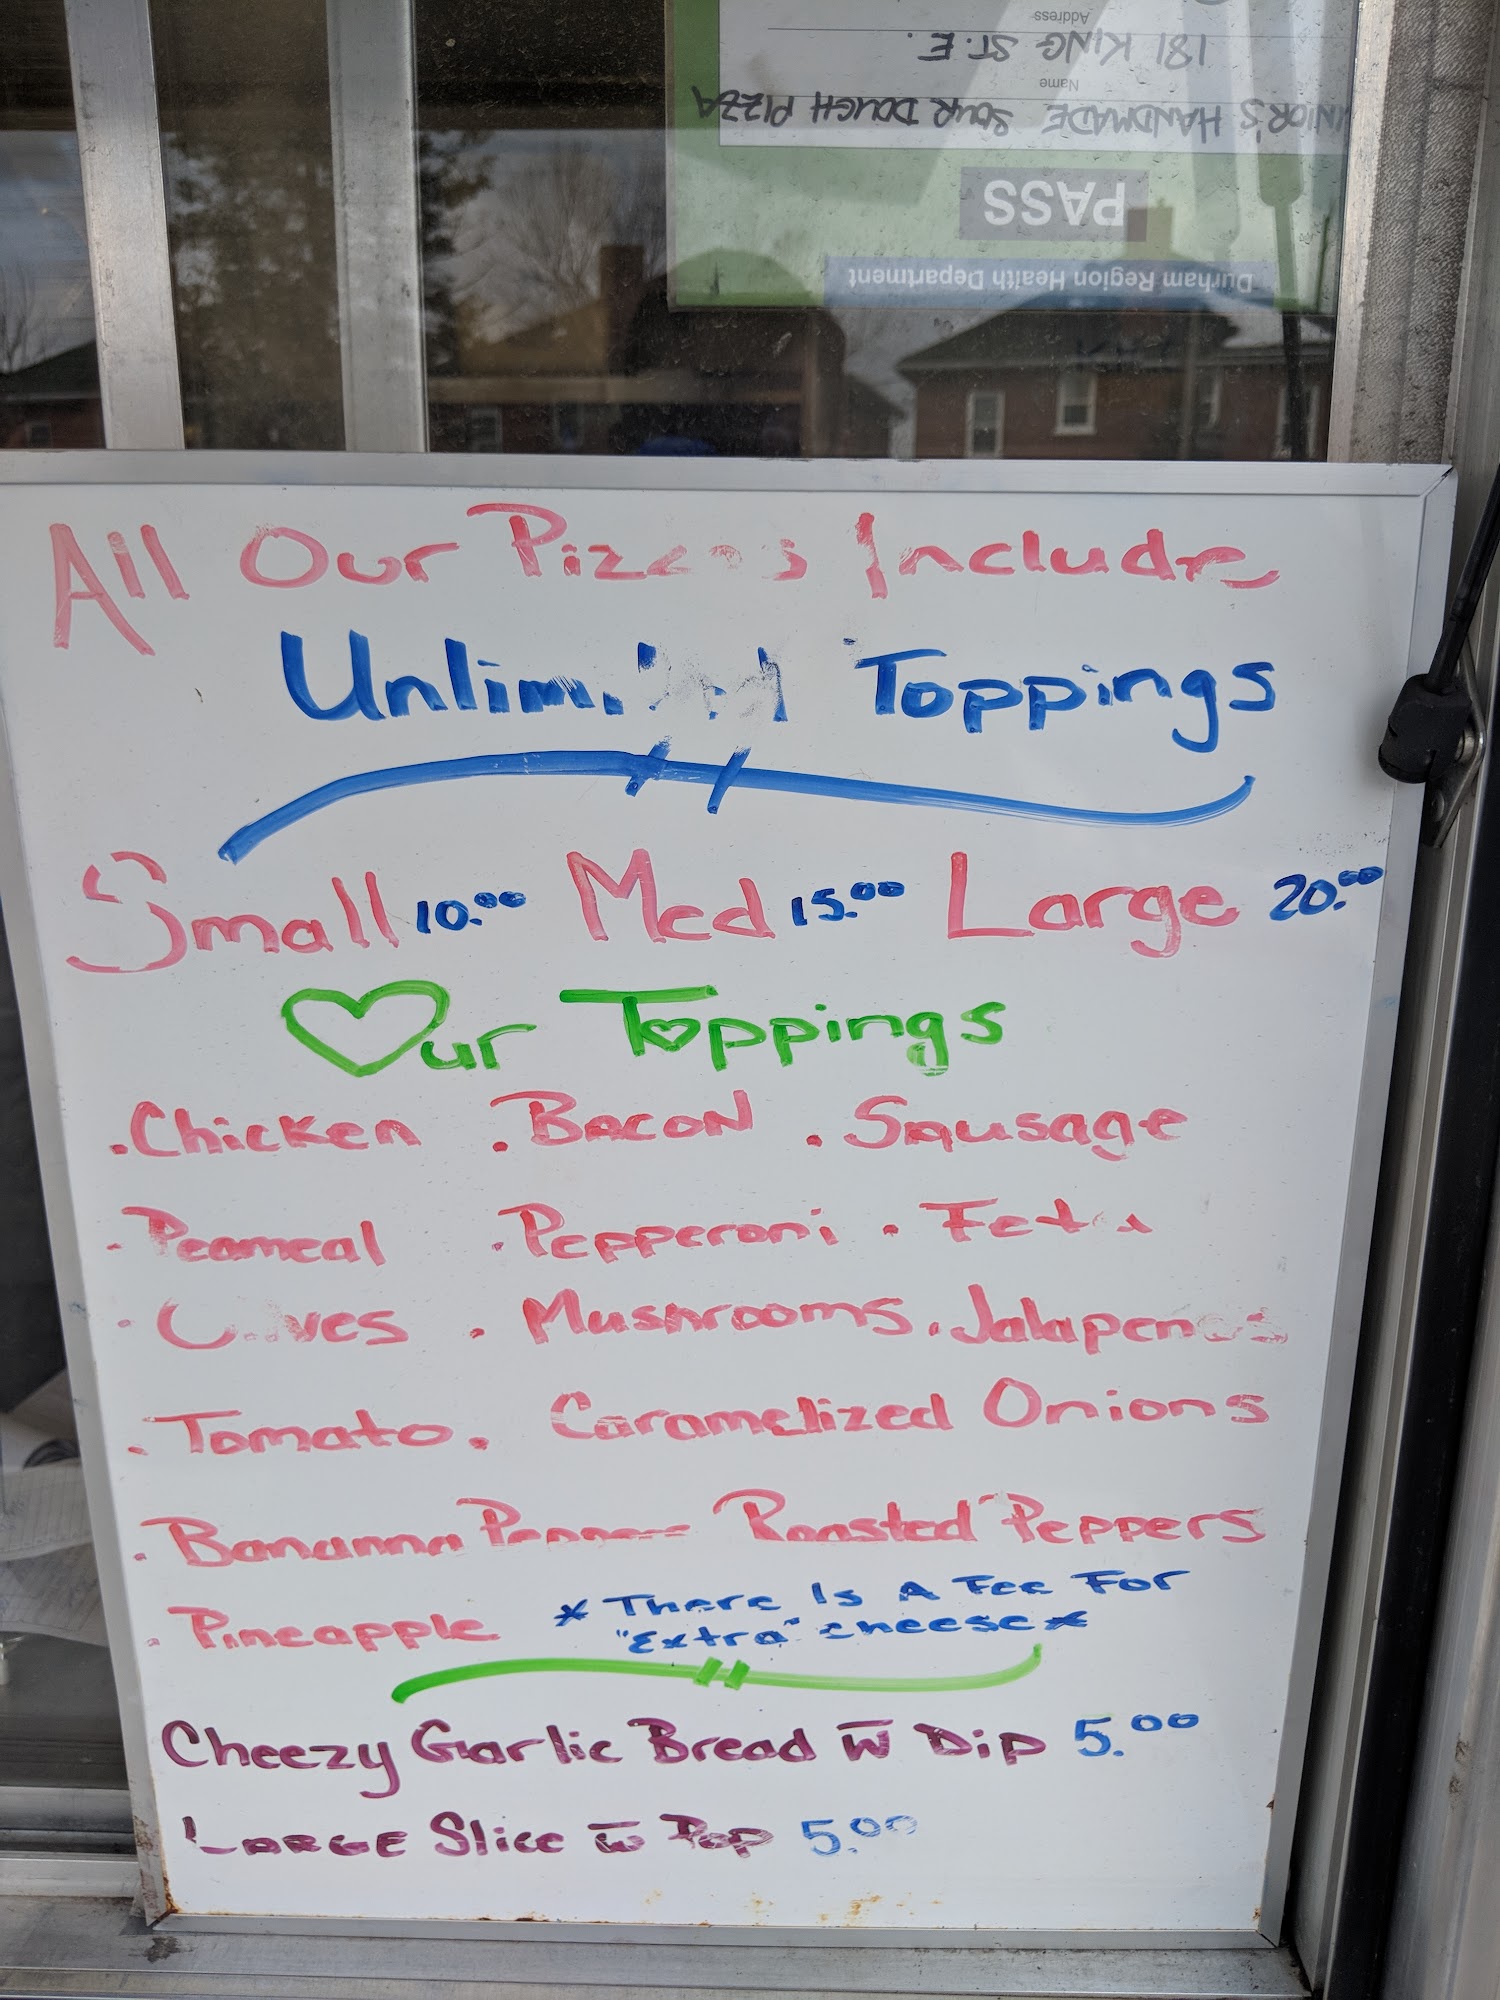 Address
181 KING ST. E.
Name
NIOR'S HANDMADE SOUR DOUGH PIZZA
PASS
Durham Region Health Department
All Our Pizzas Include
Unlimited Toppings
Small 10.00 Med 15.00 Large 20.00
Our Toppings
. Chicken . Bacon . Sausage
. Peameal . Pepperoni . Feta
. Olives . Mushrooms . Jalapenos
. Tomato . Caramelized Onions
. Bananna Pepper Roasted Peppers
. Pineapple * There Is A Fee For
"Extra" cheese *
Cheezy Garlic Bread w Dip 5.00
LARGE Slice w Pop 5.00